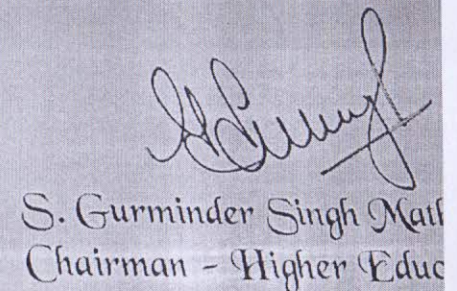 S. Gurminder Singh Math
Chairman - Higher Educ